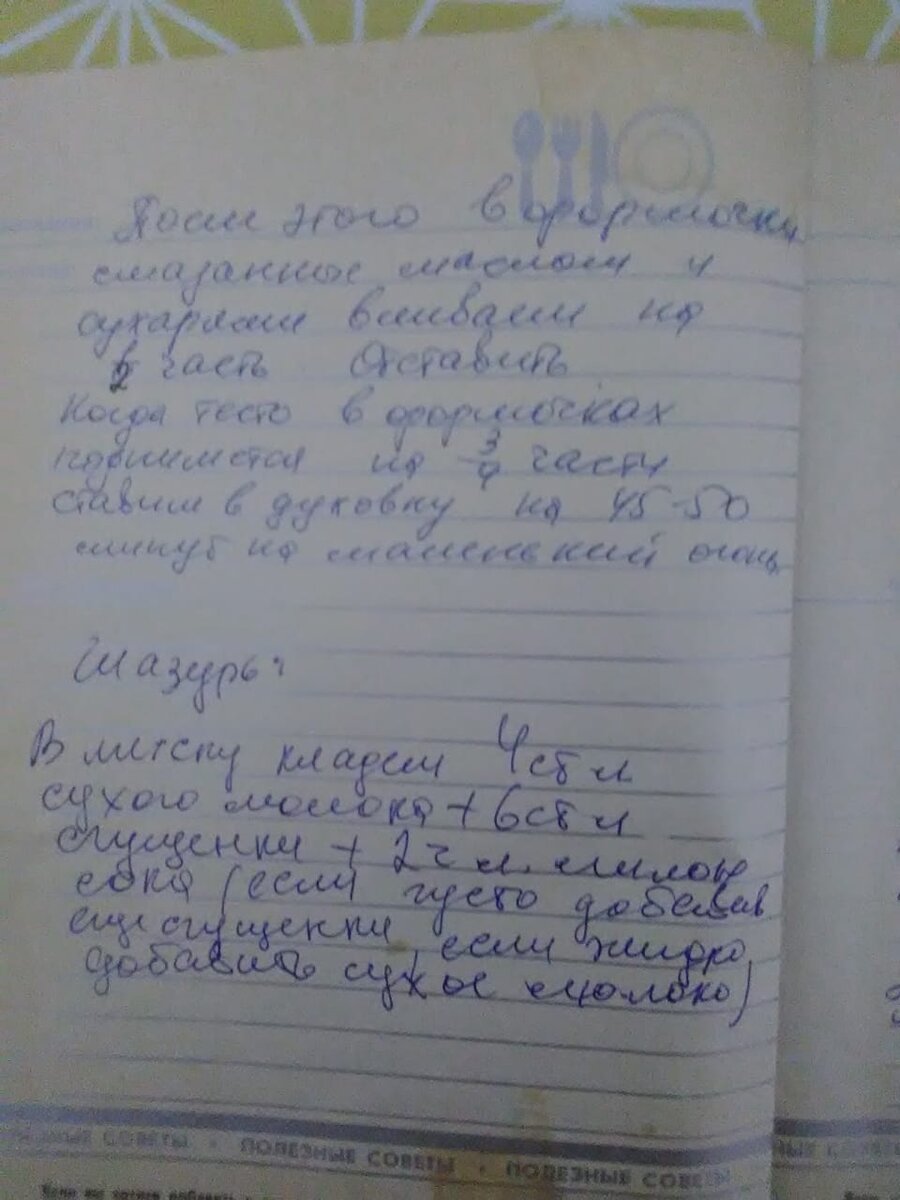 После этого в формочки
смазанные маслом и
сухарями вливаем на
½ часть Отставить
Когда тесто в формочках
поднимется на 3/4 части
ставим в духовку на 45-50
минут на маленький огонь
Глазурь:
В миску кладем 4 ст л
сухого молока + 6 ст л
сгущенки + 2 ч л. лимон
сока (если густо добавив
еще сгущенки, если жидко
добавить сухое молоко)
ЕЗНЫЕ СОВЕТЫ • ПОЛЕЗНЫЕ СОВЕТЫ • ПОЛЕЗНЫЕ СОВЕТЫ